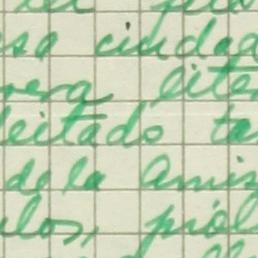 esa ciudad
vera lite
leitado ta
de la Amis
los, pról